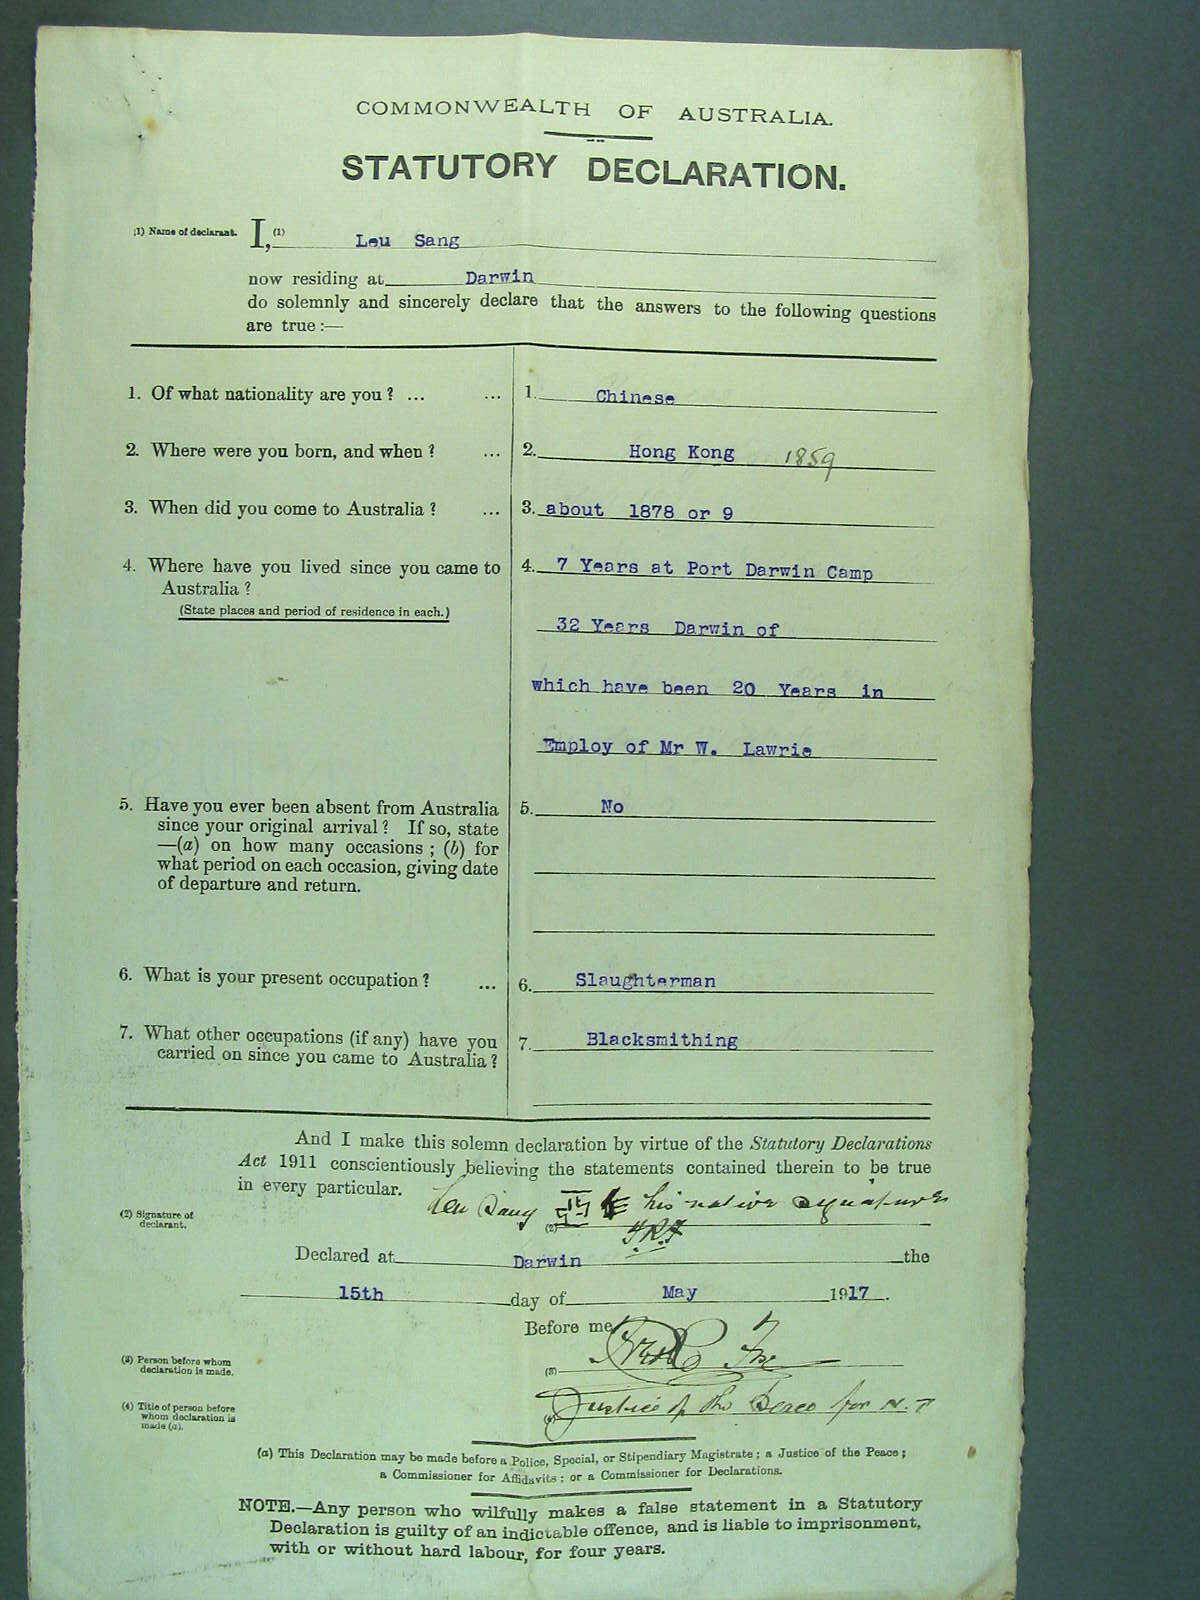 COMMONWEALTH OF AUSTRALIA.
STATUTORY DECLARATION.
(1) Name of declarant. I, (1) Leu Sang
now residing at Darwin
do solemnly and sincerely declare that the answers to the following questions
are true :—
1. Of what nationality are you ? ... ... 1. Chinese
2. Where were you born, and when ? ... 2. Hong Kong 1859
3. When did you come to Australia ? ... 3. about 1878 or 9
4. Where have you lived since you came to 4. 7 Years at Port Darwin Camp
Australia ?
(State places and period of residence in each.)
32 Years Darwin of
which have been 20 Years in
Employ of Mr W. Lawrie
5. Have you ever been absent from Australia 5. No
since your original arrival ? If so, state
—(a) on how many occasions ; (b) for
what period on each occasion, giving date
of departure and return.
6. What is your present occupation ? ... 6. Slaughterman
7. What other occupations (if any) have you 7. Blacksmithing
carried on since you came to Australia ?
And I make this solemn declaration by virtue of the Statutory Declarations
Act 1911 conscientiously believing the statements contained therein to be true
in every particular.
Leu Sang his native signature
(2) Signature of
declarant.
(2)
Declared at Darwin the
15th day of May 1917.
Before me
(3) Person before whom
declaration is made.
(3)
(4) Title of person before
whom declaration is
made (a).
Justice of the Peace for N.T
(a) This Declaration may be made before a Police, Special, or Stipendiary Magistrate ; a Justice of the Peace ;
a Commissioner for Affidavits ; or a Commissioner for Declarations.
NOTE.—Any person who wilfully makes a false statement in a Statutory
Declaration is guilty of an indictable offence, and is liable to imprisonment,
with or without hard labour, for four years.